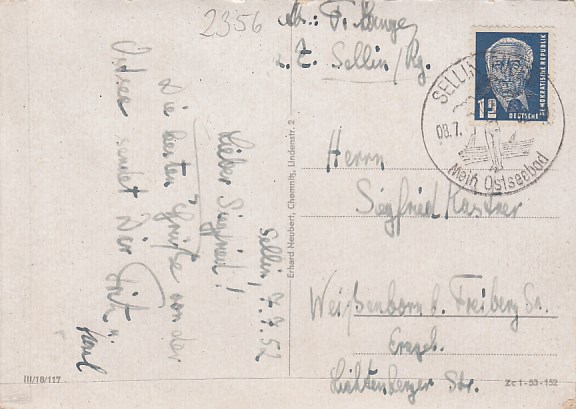 2356
Abs.: F. Lange
z. Z. Sellin/Rg.
12
DEUTSCHE
DEMOKRATISCHE REPUBLIK
SELLIN
08.7.
Mein Ostseebad
Sellin, 7.7.52
Lieber Siegfried!
Die besten Grüße von der
Ostsee sendet Dir Fritz u.
Erhard Neubert, Chemnitz, Lindenstr. 2
Herrn
Siegfried Kastner
Weißenborn b. Freiberg Sa.
Erzgeb.
Lichtenberger Str.
III/18/117
Zc 1-53-152